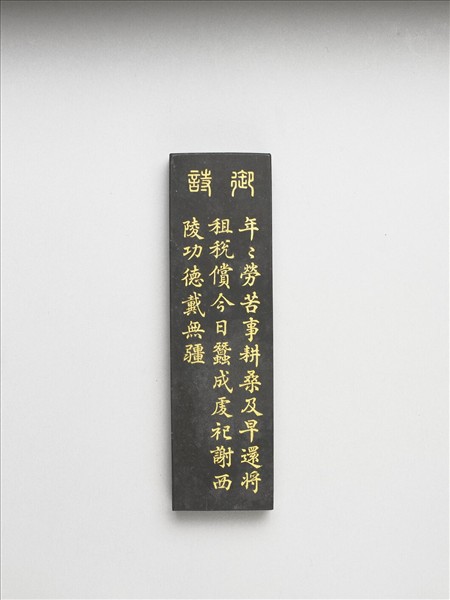 御詩
年〻勞苦事耕桑及早還將
租稅償今日蠶成虔祀謝西
陵功德戴無疆